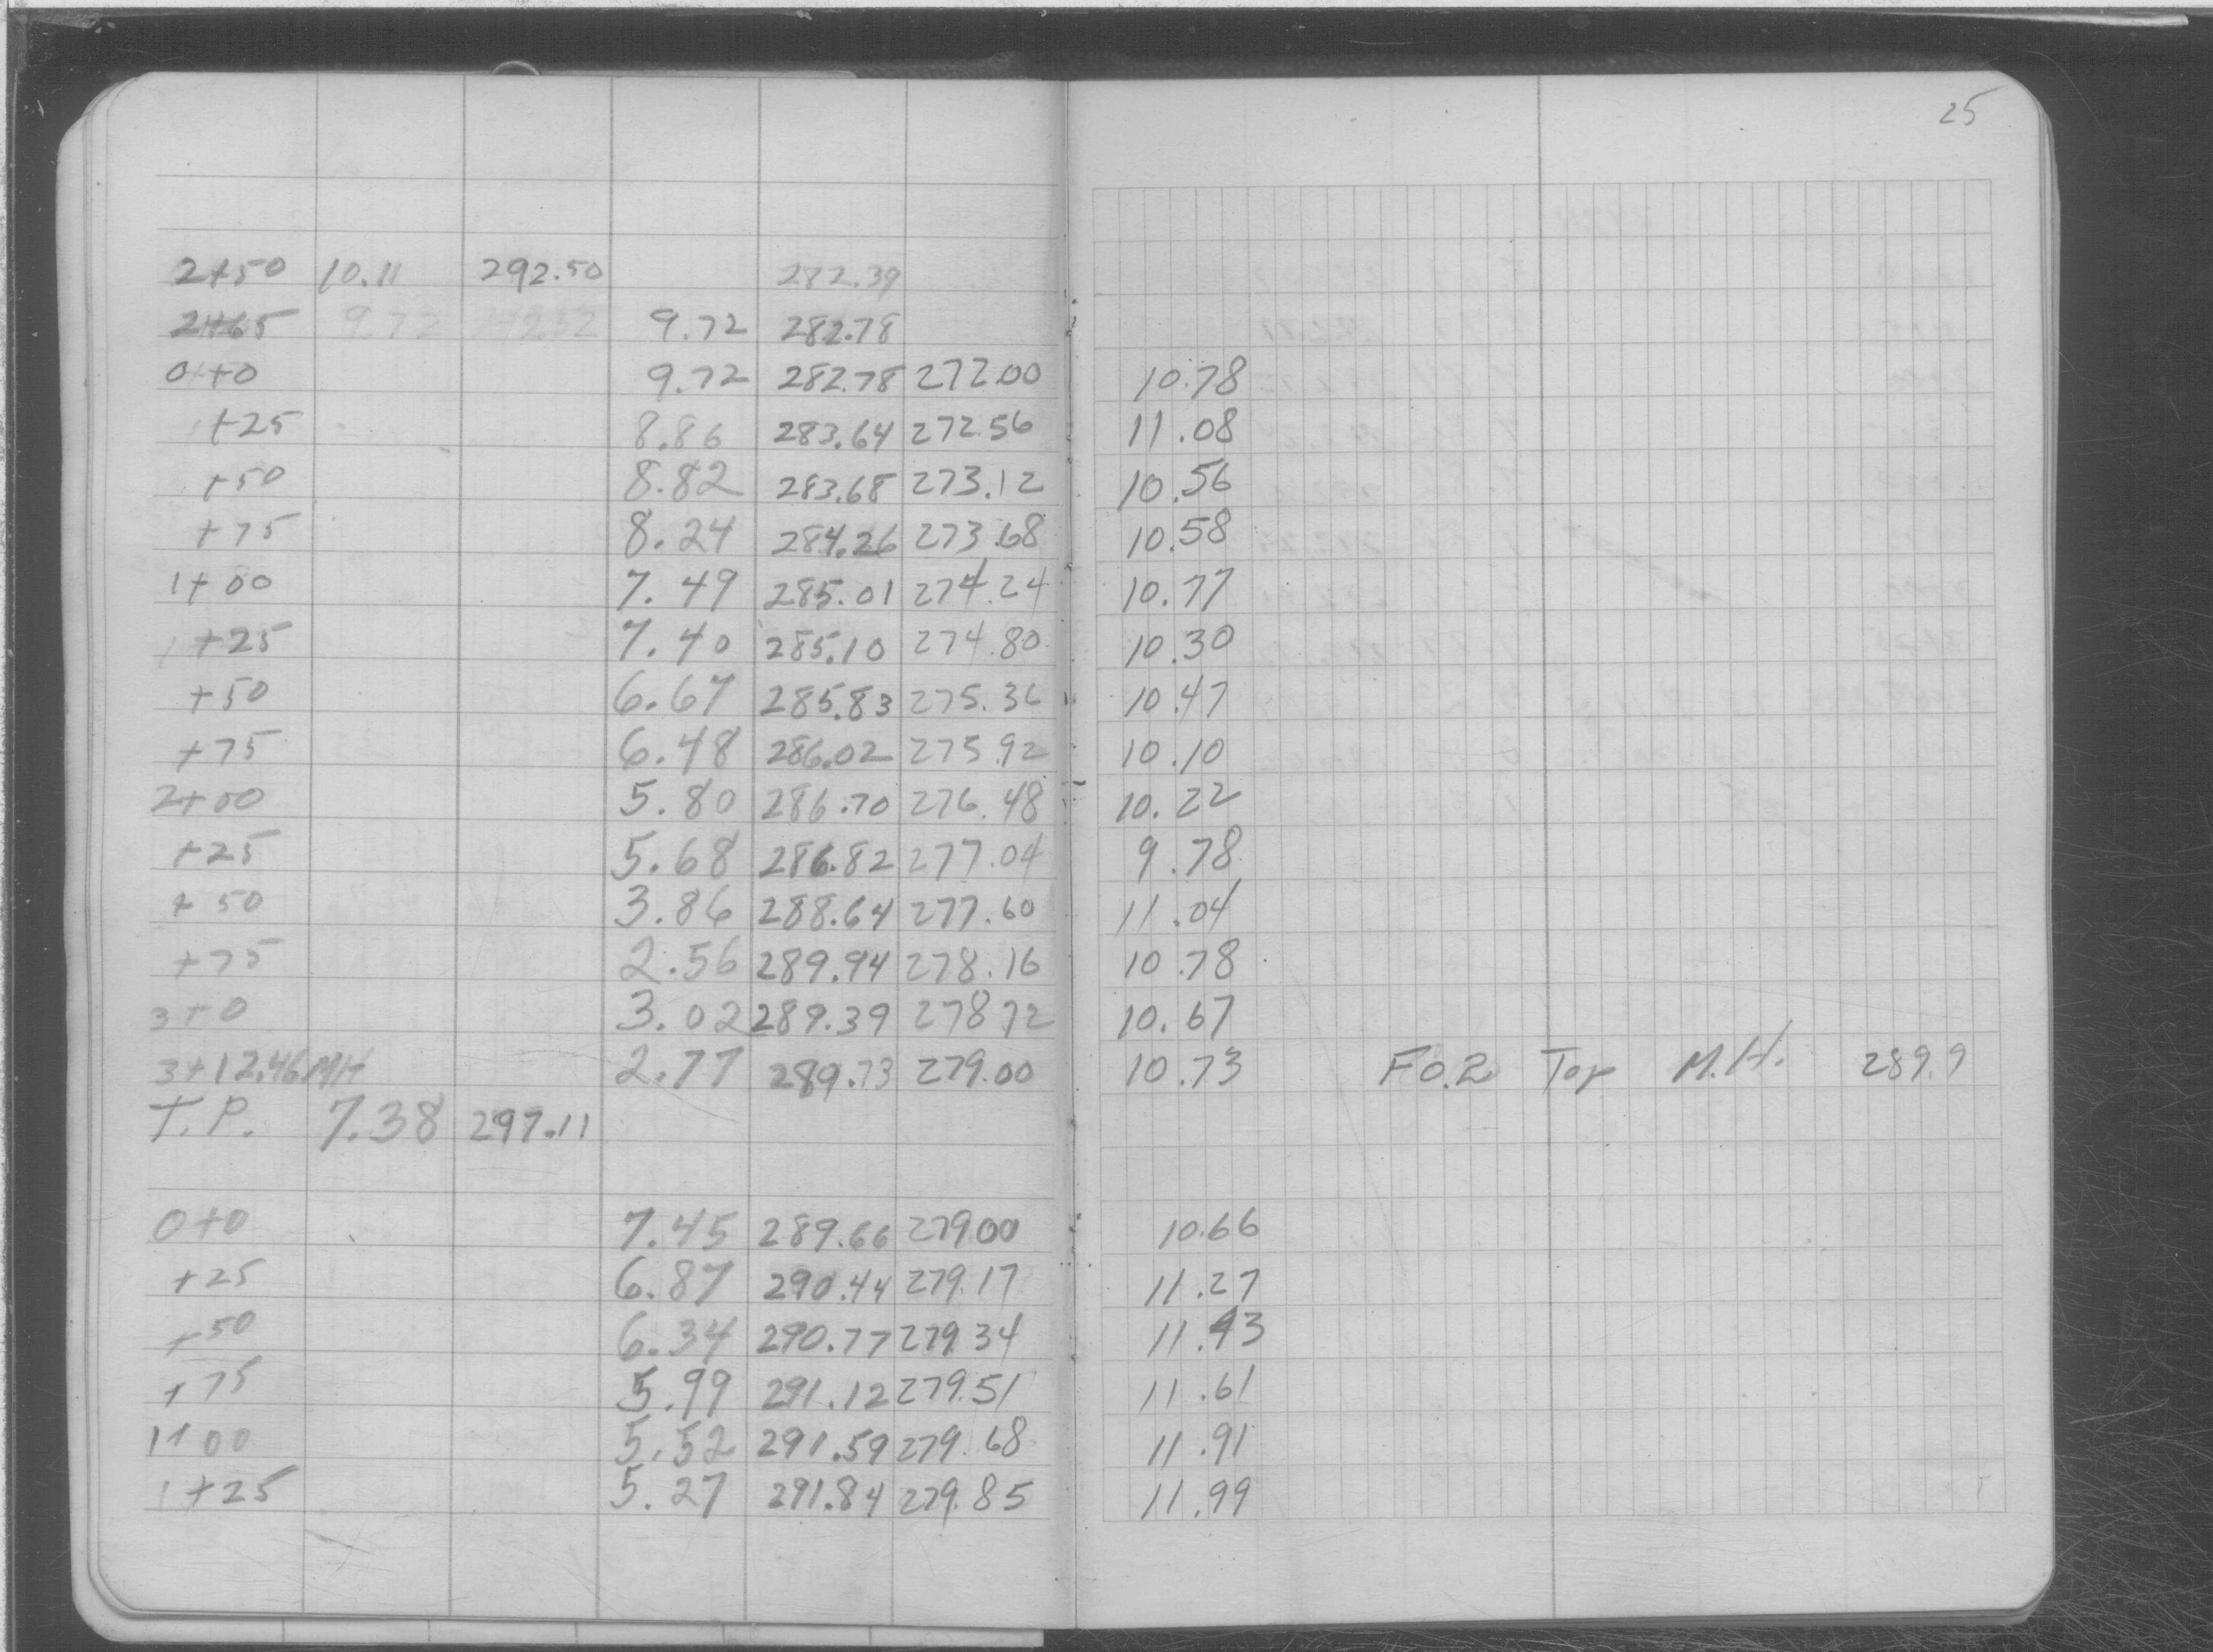 25
2+50 10.11 292.50 282.39
2+65 9.72 9.72 282.78
0+0 9.72 282.78 272.00 10.78
+25 8.86 283.64 272.56 11.08
+50 8.82 283.68 273.12 10.56
+75 8.24 284.26 273.68 10.58
1+00 7.49 285.01 274.24 10.77
1+25 7.40 285.10 274.80 10.30
+50 6.67 285.83 275.36 10.47
+75 6.48 286.02 275.92 10.10
2+00 5.80 286.70 276.48 10.22
+25 5.68 286.82 277.04 9.78
+50 3.86 288.64 277.60 11.04
+75 2.56 289.94 278.16 10.78
3+0 3.02 289.39 278.72 10.67
3+12.46 MH 2.77 289.73 279.00 10.73 F0.2 Top M.H. 289.9
T.P. 7.38 297.11
0+0 7.45 289.66 279.00 10.66
+25 6.87 290.44 279.17 11.27
+50 6.34 290.77 279.34 11.43
+75 5.99 291.12 279.51 11.61
1+00 5.52 291.59 279.68 11.91
1+25 5.27 291.84 279.85 11.99